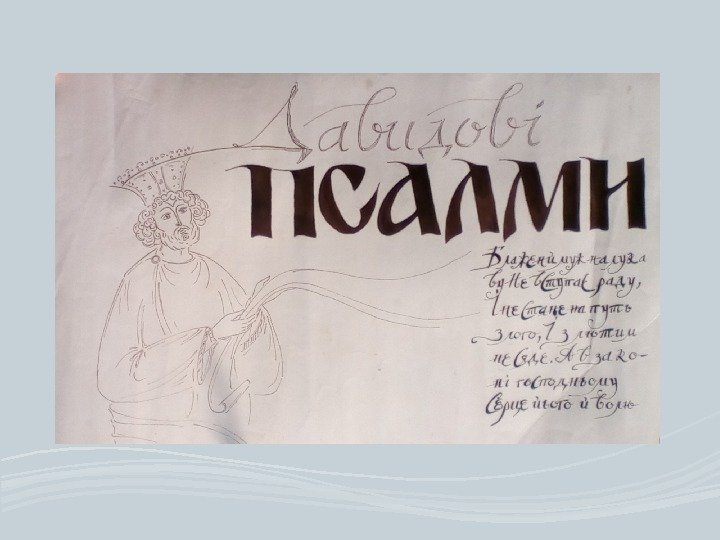 Давидові
ПСАЛМИ
Блажений муж на лука
ву не вступає раду,
І не стане на путь
злого, І з лютим
не сяде. А в зако-
ні господньому
Серце його й воля